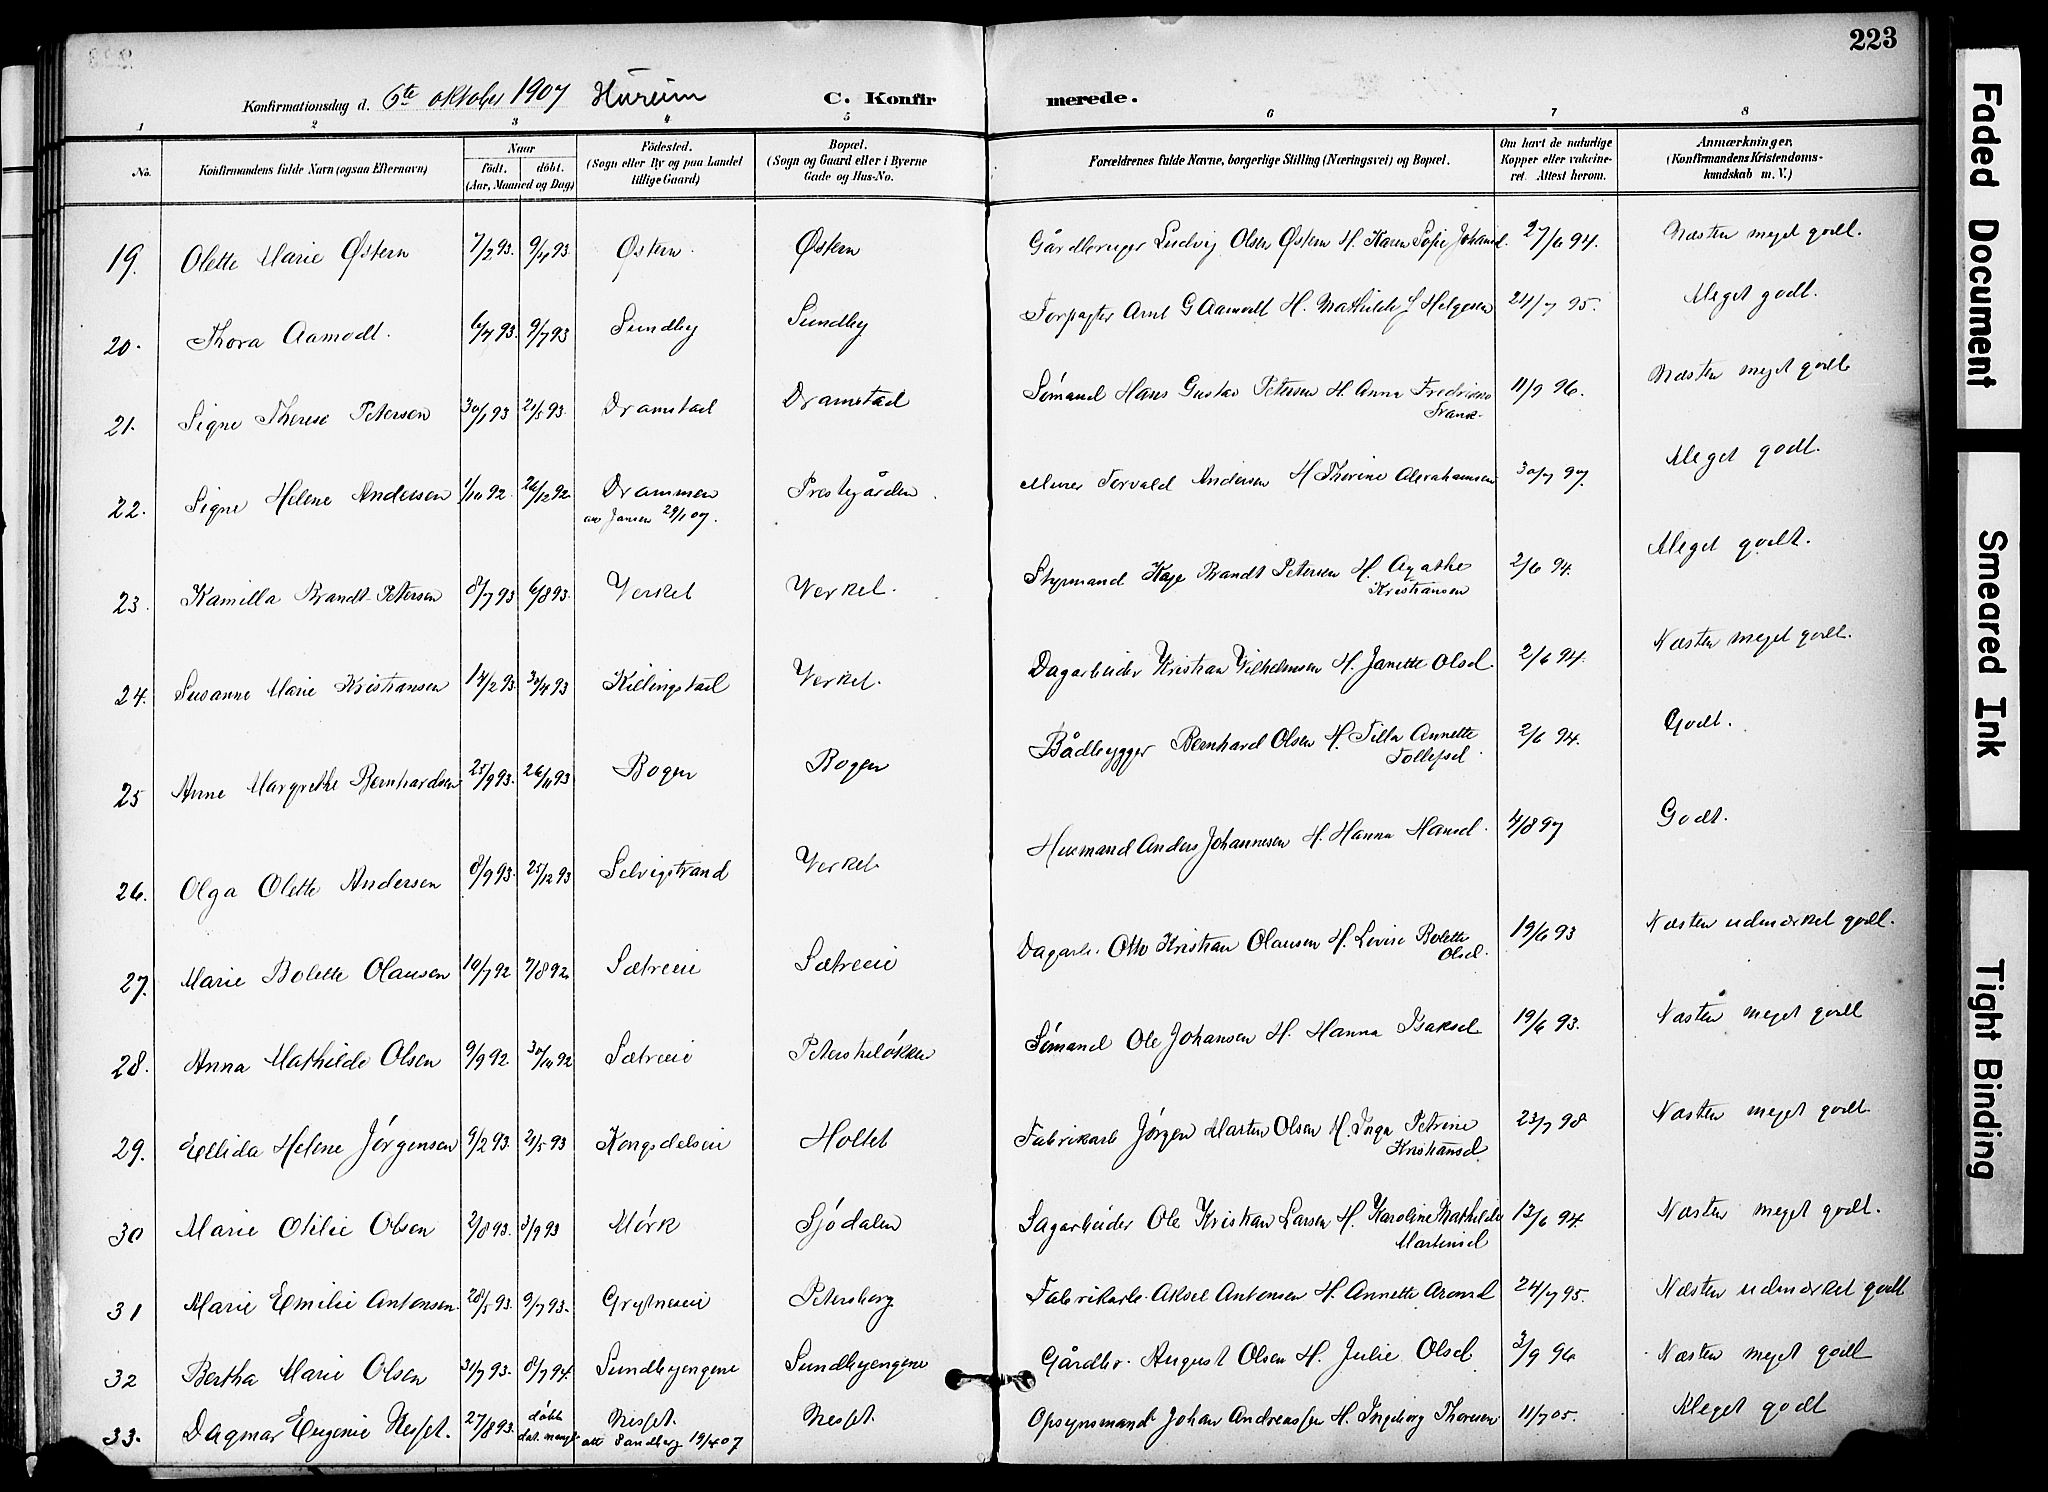 223
Konfirmationsdag d. 6te oktober 1907 Hurum C. Konfirmerede.
1 2 3 4 5 6 7 8
No. Konfirmandens fulde Navn (ogsaa Efternavn) Naar födt. döbt. (Aar, Maaned og Dag) Födested. (Sogn eller By og paa Landet tillige Gaard) Bopæl. (Sogn og Gaard eller i Byerne Gade og Hus-No. Forældrenes fulde Navne, borgerlige Stilling (Næringsvei) og Bopæl. Om havt de naturlige Kopper eller vakcineret. Attest herom. Anmærkninger. (Konfirmandens Kristendomskundskab m. V.)
19. Olette Marie Østern 7/2 93. 9/4 93 Østern. Østern Gårdbruger Ludvig Olsen Østern H. Karen Sofie Johansd. 27/6 94. Næsten meget godt.
20. Thora Aamodt. 6/4 93. 9/7 93 Sundby Sundby Forpagter Arnt G Aamodt H. Mathilde Helgesen 24/7 95. Meget godt.
21. Signe Therese Petersen 30/1 93 21/5 93. Dramstad Dramstad Sømand Hans Gustav Petersen H. Anna Fredrikke Frank. 11/9 96. Næsten meget godt
22. Signe Helene Andersen 1/10 92. 26/12 92. Drammen Prestegården Murer Torvald Andersen H Thorine Abrahamsen 30/7 97. Meget godt.
att Jansen 29/1 07.
23. Kamilla Brandt-Petersen 8/7 93 6/8 93. Verket Verket. Styrmand Kaje Brandt Petersen H. Agathe Kristiansen 2/6 94. Meget godt.
24. Susanne Marie Kristiansen 14/2 93. 30/4 93 Killingstad Verket. Dagarbeider Kristian Vilhelmsen H. Janette Olsd. 2/6 94. Næsten meget godt.
25 Anne Margrethe Bernhardsen 25/9 93. 26/11 93 Bogen Bogen Bådbygger Bernhard Olsen H. Tilla Annette Tollefsd. 2/6 94. Godt.
26. Olga Olette Andersen 8/9 93. 25/12 93 Selvigstrand Verket. Husmand Anders Johannesen H. Hanna Hansd. 4/8 97 Godt.
27. Marie Bolette Olausen 10/7 92 7/8 92 Sætreeie Sætreeie Dagarb. Otto Kristian Olausen H. Lovise Bolette Olsd. 19/6 93 Næsten udmærket godt.
28. Anna Mathilde Olsen 9/9 92. 30/10 92 Sætreeie Petersheløkken Sømand Ole Johansen H. Hanna Isaksd. 19/6 93. Næsten meget godt
29. Ellida Helene Jørgensen 9/2 93. 21/5 93 Kongsdelseie Holtet Fabrikarb Jørgen Marten Olsen H. Inga Petrine Kristiansd. 23/7 98 Næsten meget godt.
30 Marie Otilie Olsen 2/8 93. 3/9 93 Mørk Sjødalen Sagarbeider Ole Kristian Larsen H. Karoline Mathilde Martinsd. 13/6 94. Næsten meget godt.
31 Marie Emilie Antonsen 28/5 93. 9/7 93. Grytneseie Petersborg Fabrikarb. Aksel Antonsen H. Annette Aronsd 24/7 95. Næsten udmærket godt
32 Bertha Marie Olsen 31/7 93. 8/7 94. Sundbyengene Sundbyengene Gårdbr. August Olsen H. Julie Olsd 3/9 96 Næsten meget godt
33. Dagmar Eugenie Nesset. 27/8 93. døbt Nesset. Nesset. Opsynsmand Johan Andreassen H. Ingeborg Thoresen 11/7 05. Meget godt
att Sandberg 19/4 07
Faded Document
Smeared Ink
Tight Binding